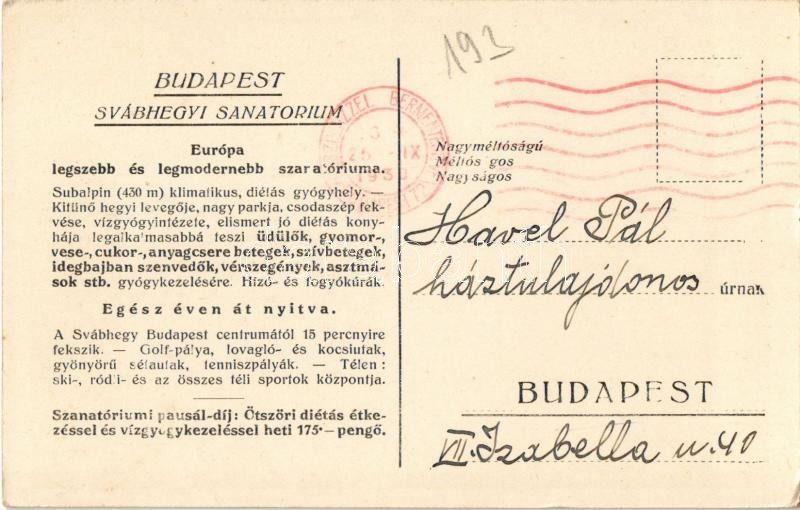 BUDAPEST
SVÁBHEGYI SANATORIUM
Európa
legszebb és legmodernebb szanatóriuma.
Subalpin (430 m) klimatikus, diétás gyógyhely. —
Kitünő hegyi levegője, nagy parkja, csodaszép fek-
vése, vízgyógyintézete, elismert jó diétás kony-
hája legalkalmasabbá teszi üdülők, gyomor-,
vese-, cukor-, anyagcsere betegek, szívbetegek,
idegbajban szenvedők, vérszegények, asztmá-
sok stb. gyógykezelésére. Hízó- és fogyókúrák.
Egész éven át nyitva.
A Svábhegy Budapest centrumától 15 percnyire
fekszik. — Golf-pálya, lovagló- és kocsiutak,
gyönyörű sétautak, tenniszpályák. — Télen:
ski-, ródli- és az összes téli sportok központja.
Szanatóriumi pausál-díj: Ötszöri diétás étke-
zéssel és vízgyógykezeléssel heti 175·— pengő.
193
BÉRMENTVE
25 IX
Nagyméltóságú
Méltós gos
Nagyságos
Havel Pál
háztulajdonos úrnak
BUDAPEST
VII. Izabella u. 40